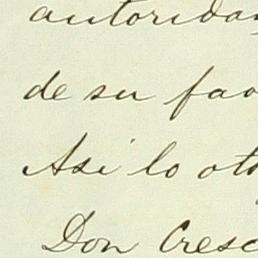 autoridad
de su fav
Así lo oto
Don Cresc